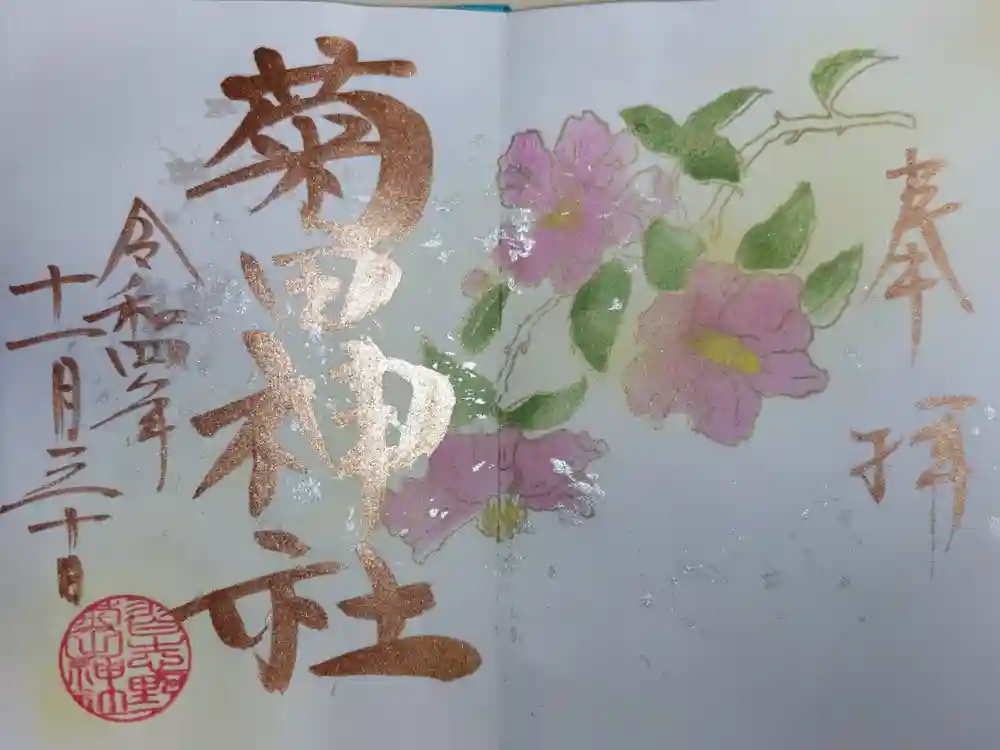 奉拝
菊田神社
令和四年
十一月三十日
習志野
菊田神社